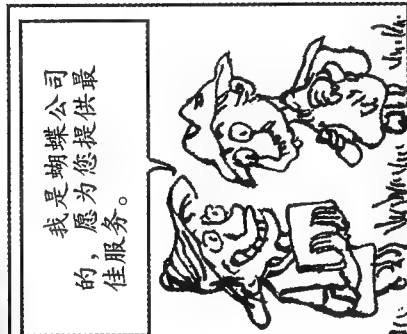 我是蝴蝶公司
的，愿为您提供最
佳服务。